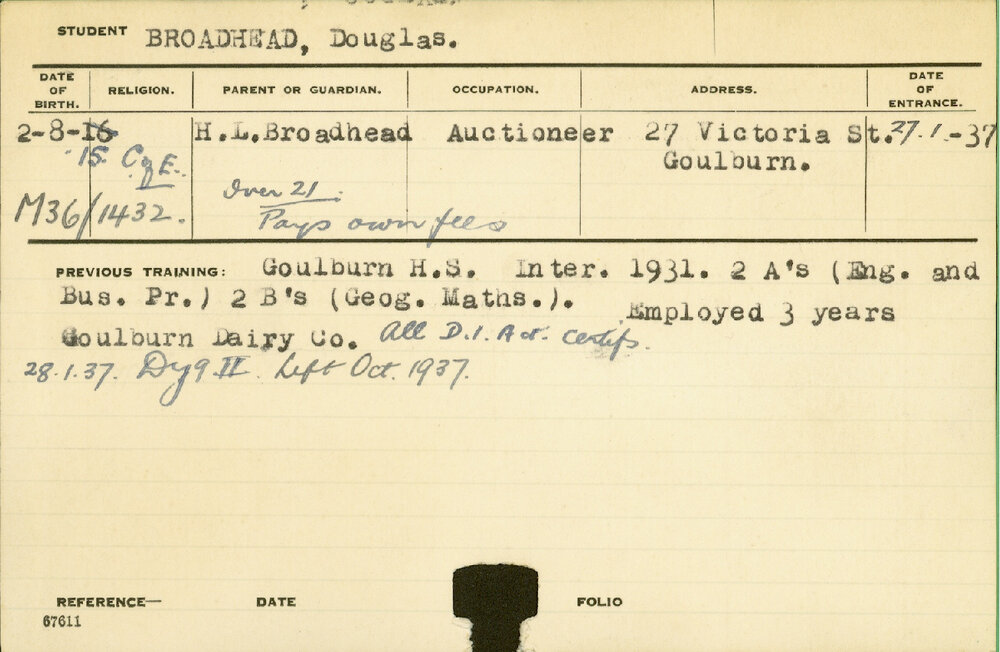 STUDENT BROADHEAD, Douglas.
DATE OF BIRTH. RELIGION. PARENT OR GUARDIAN. OCCUPATION. ADDRESS. DATE OF ENTRANCE.
2-8-16 H.L.Broadhead Auctioneer 27 Victoria St. 27.1.-37
15 C of E. Goulburn.
Over 21.
M36/1432. Pays own fees
PREVIOUS TRAINING: Goulburn H.S. Inter. 1931. 2 A's (Eng. and
Bus. Pr.) 2 B's (Geog. Maths.). Employed 3 years
Goulburn Dairy Co. All D.I. Ad. certifs.
28.1.37. Dy9.II. Left Oct. 1937.
REFERENCE— DATE FOLIO
67611